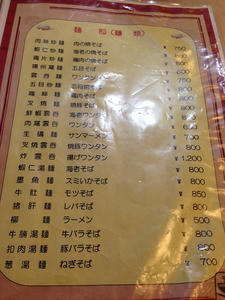 麺類(麺類)
肉絲炒麺 肉の焼そば ¥ 750
蝦仁炒麺 海老の焼そば ¥
鶏片炒麺 鶏肉の焼そば ¥
揚州湯麺 五目そば ¥ 800
雲呑麺 ワンタンメン ¥
五目炒麺 五目焼そば ¥ 800
海鮮麺 海鮮そば ¥ 800
叉焼麺 焼豚そば ¥ 800
鮮蝦雲呑 海老ワンタン ¥ 800
肉雲呑 ワンタン ¥
生碼麺 サンマーメン ¥ 700
叉焼雲呑 焼豚ワンタン ¥ 800
炸雲呑 揚げワンタン ¥ 1,200
蝦仁湯麺 海老そば ¥ 800
墨魚麺 スミいかそば ¥ 800
牛肚麺 モツそば ¥ 850
猪肝麺 レバそば ¥ 800
柳麺 ラーメン ¥ 500
牛腩湯麺 牛バラそば ¥ 800
扣肉湯麺 豚バラそば ¥ 800
葱湯麺 ねぎそば ¥ 700